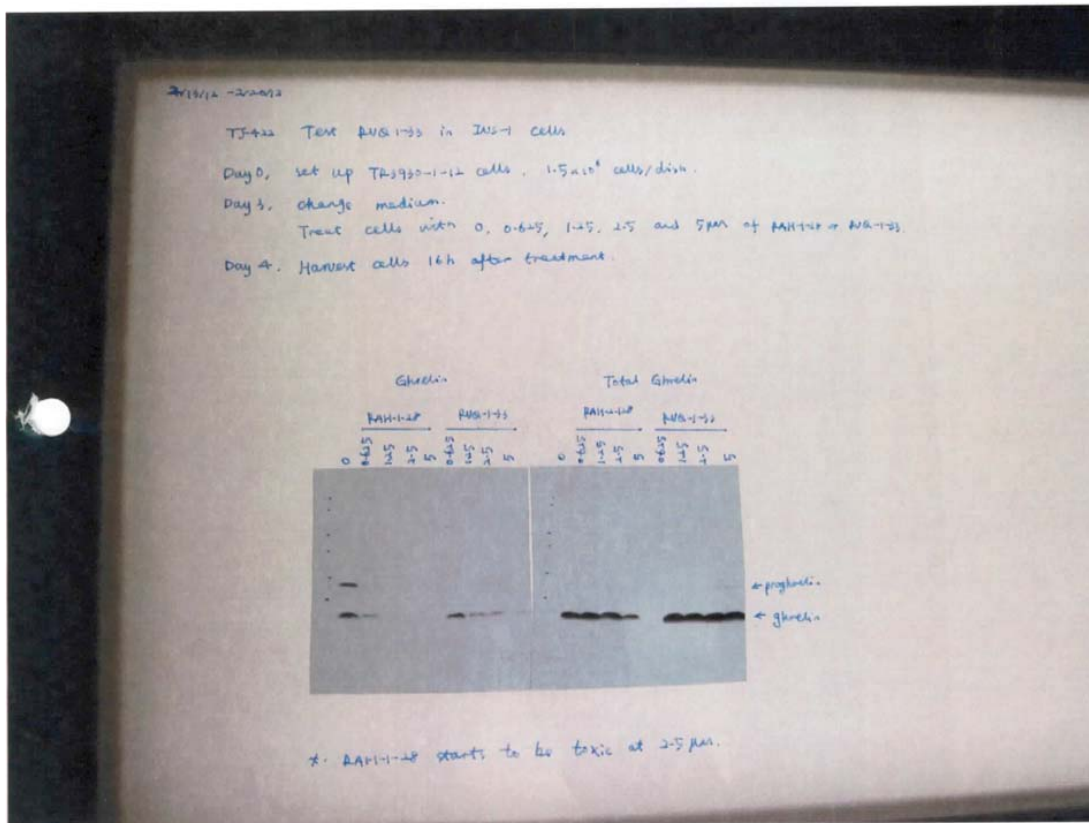 TJ-422 Test RVQ-1-33 in INS-1 cells
Day 0, set up TR3930-1-12 cells. 1.5x10⁶ cells/dish.
Day 3, change medium.
Treat cells with 0, 0.625, 1.25, 2.5 and 5μM of RAH-1-28 or RVQ-1-33.
Day 4. Harvest cells 16h after treatment.
Ghrelin Total Ghrelin
RAH-1-28 RVQ-1-33 RVQ-1-33
0 0.625 1.25 2.5 5 0.625 1.25 2.5 5 0 0.625 1.25 2.5 5 0.625 1.25 2.5 5
← proghrelin
← ghrelin
*. RAH-1-28 starts to be toxic at 2.5 μM.